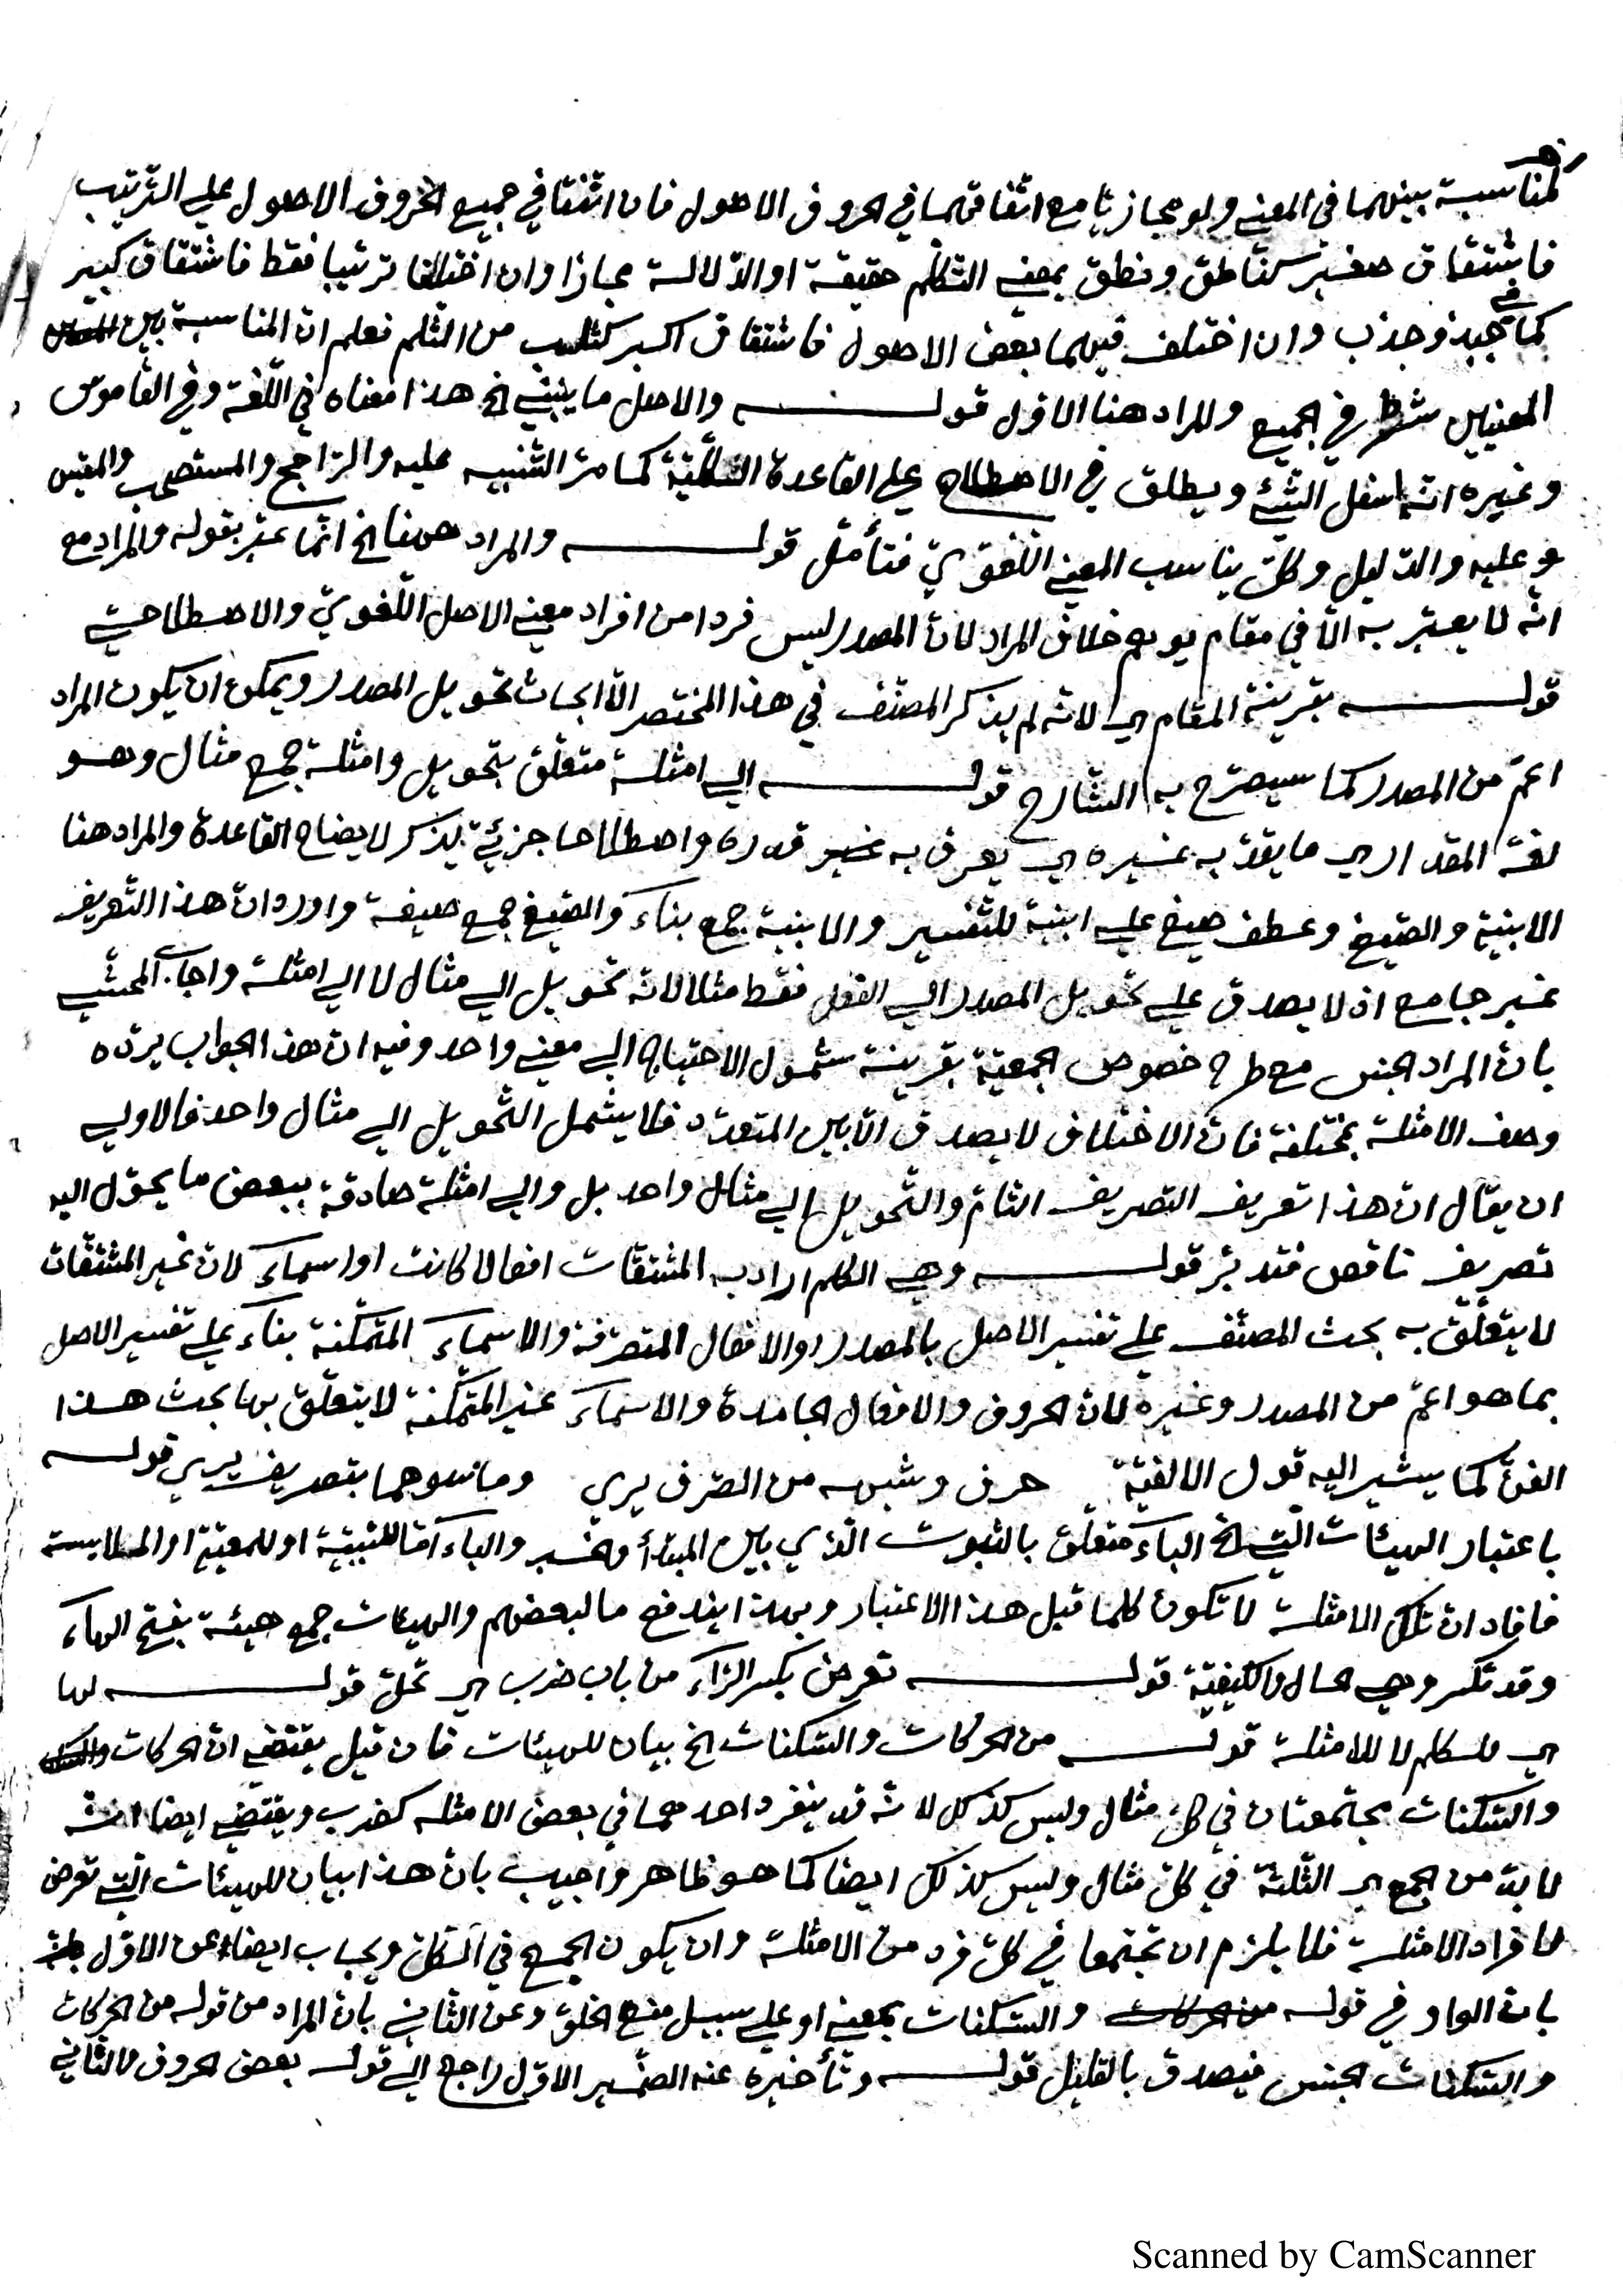 لمناسبة بينهما في المعنى ولو مجازيا مع اتفاقهما في الحروف الاصول فان اتفقا في جميع الحروف الاصول على الترتيب
فاشتقاق صغير كناطق ونطق بمعنى التكلم حقيقة او الدلالة مجازا وان اختلفا ترتيبا فقط فاشتقاق كبير
كما في جبذ وجذب وان اختلف فيهما بعض الاصول فاشتقاق اكبر كثلب من الثلم فعلم ان المناسبة بين
المعنيين شرط في الجميع والمراد هنا الاول قوله والاصل ما يبنى الخ هذا معناه في اللغة وفي القاموس
وغيره انه اسفل الشئ ويطلق في الاصطلاح على القاعدة الكلية كما مر التنبيه عليه والراجح والمستصحب والمقيس
عليه والدليل وكل يناسب المعنى اللغوي فتأمل قوله والمراد ههنا الخ انما عبر بقوله والمراد مع
انه لا يعبر به الا في مقام يوهم خلاف المراد لان المصدر ليس فردا من افراد معنى الاصل اللغوي والاصطلاحي
قوله بقرينة المقام اي لانه لم يذكر المصنف في هذا المختصر الا ابحاث تحويل المصدر ويمكن ان يكون المراد
اعم من المصدر كما سيصرح به الشارح قوله الى امثلة متعلق بتحويل وامثلة جمع مثال وهو
لغة المقدار اي ما يقدر به غيره اي يعرف به قدره واصطلاحا جزئي يذكر لايضاح القاعدة والمراد هنا
الابنية والصيغ وعطف صيغ على ابنية للتفسير والابنية جمع بناء والصيغ جمع صيغة واورد ان هذا التعريف
غير جامع اذ لا يصدق على تحويل المصدر الى الفعل فقط مثلا لانه تحويل الى مثال لا الى امثلة واجاب المحشي
بان المراد الجنس مع طرح خصوص الجمعية بقرينة شمول الاحتياج الى معنى واحد وفيه ان هذا الجواب يرده
وصف الامثلة بمختلفة فان الاختلاف لا يصدق الا بين المتعدد فلا يشمل التحويل الى مثال واحد فالاولى
ان يقال ان هذا تعريف التصريف التام والتحويل الى مثال واحد بل والى امثلة صادقة ببعض ما يحول اليه
تصريف ناقص فتدبر قوله وهي الكلم اراد به المشتقات افعالا كانت او اسماء لان غير المشتقات
لا يتعلق به بحث المصنف على تفسير الاصل بالمصدر او الافعال المتصرفة والاسماء المتمكنة بناء على تفسير الاصل
بما هو اعم من المصدر وغيره لان الحروف والافعال الجامدة والاسماء غير المتمكنة لا يتعلق بها بحث هذا
الفن كما يشير اليه قول الالفية حرف وشبهه من الصرف بري وما سوهما بتصريف يري قوله
باعتبار الهيئات التي الخ الباء متعلق بالثبوت الذي بين المبتدأ والخبر والباء اما للسببية او للمعية او الملابسة
فافاد ان تلك الامثلة لا تكون كلما قبل هذا الاعتبار وبهذا يندفع ما لبعضهم والهيئات جمع هيئة بفتح الهاء
وقد تكسر وهي الحال والكيفية قوله تعرض بكسر الراء من باب ضرب اي تحل قوله لها
اي للكلم لا للامثلة قوله من الحركات والسكنات الخ بيان للهيئات فان قيل يقتضي ان الحركات
والسكنات مجتمعتان في كل مثال وليس كذلك لانه قد ينفرد احدهما في بعض الامثلة كضرب ويقتضي ايضا انه
لا بد من الجمع اي الثلثة في كل مثال وليس كذلك ايضا كما هو ظاهر واجيب بان هذا بيان للهيئات التي تعرض
لافراد الامثلة فلا يلزم ان تجتمعا في كل فرد من الامثلة وان يكون الجمع في الكل ويجاب ايضا عن الاول
بان الواو في قوله والسكنات بمعنى او على سبيل منع الخلو وعن الثاني بان المراد من قوله من الحركات
والسكنات الجنس فيصدق بالقليل قوله وتأخيره عنه الضمير الاول راجع الى قوله بعض الحروف والثاني
Scanned by CamScanner